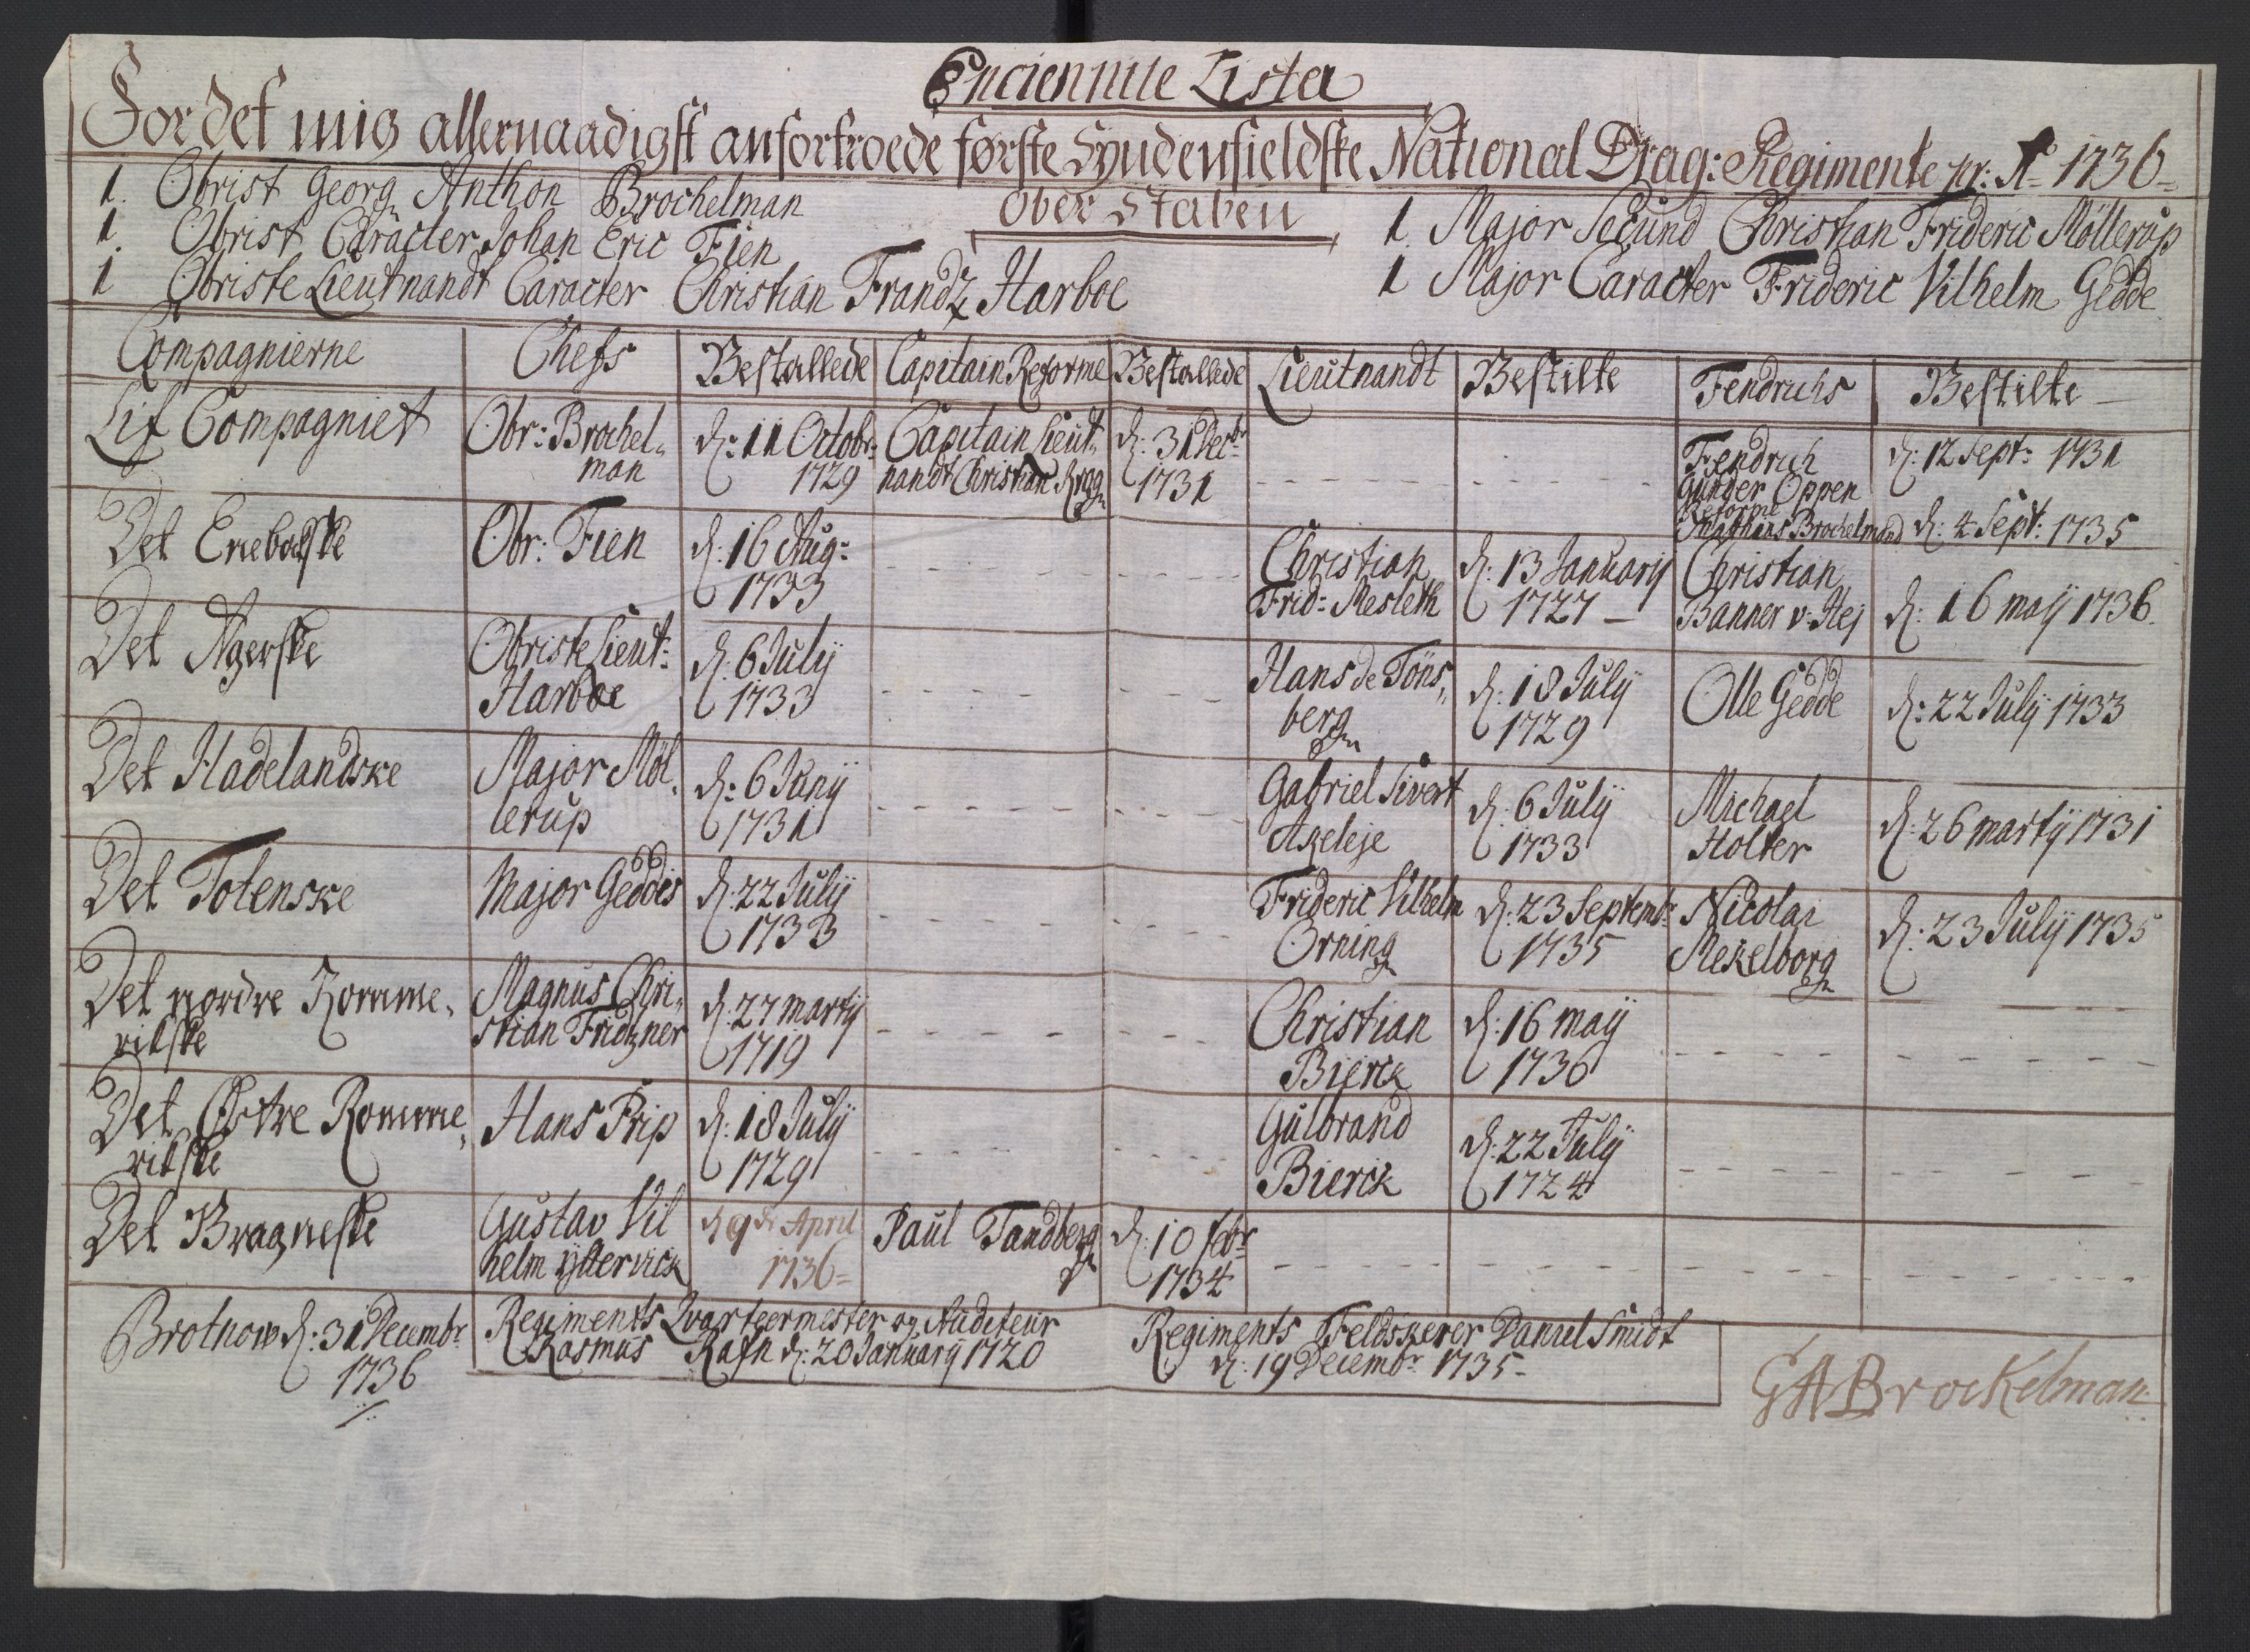 Enciennitte Lista
For det mig allernaadigst anfortroede første Syndenfieldske National Drag: Regimente pr: Ao 1736
Ober Staben
1. Obrist Georg Anthon Brochelman
1. Obrist Caracter Johan Eric Fien
1 Obriste Lieutnandt Caracter Christian Frandz Harboe
1 Major Secund Christian Frideric Möllerup
1 Major Caracter Frideric Vilhelm Gedde
Compagnierne Chefs Bestallede Capitain Reforme Bestallede Lieutnandt Bestilte Fendrichs Bestilte
Lif Compagniet
Obr: Brochel„
man
d: 11 Octobr:
1729
Capitain Lieut„
nandt Christian Krag
d: 31 Decbr
1731
Fendrich
Gunder Oppen
Reforme
Mathias Brochelmand
d: 12 Sept: 1731
d: 4 Sept: 1735
Det Enebaçhske
Obr: Fien
d: 16 Aug:
1733
Christian
Frid: Mesleth
d: 13 Januarij
1727
Christian
Banner v. Hej
d: 16 maij 1736
Det Agerske
Obriste Lieut:
Harboe
d: 6 Julij
1733
Hans de Töns„
berg
d: 18 Julij
1729
Olle Gedde
d: 22 Julij 1733
Det Hadelandske
Major Möl„
lerup
d: 6 Junij
1731
Gabriel Sivert
Ageleje
d: 6 Julij
1733
Michael
Holter
d: 26 martij 1731
Det Totenske
Major Geddes
d: 22 Julij
1733
Frideric Vilhelm
Orning
d: 23 Septembr:
1735
Nicolai
Mekelborg
d: 23 Julij 1735
Det nordre Romme„
rikske
Magnus Chri„
stian Fridzner
d: 27 martij
1719
Christian
Bierck
d: 16 maij
1736
Det Østre Romme„
rikske
Hans Prip
d: 18 Julij
1729
Gulbrand
Bierck
d: 22 Julij
1724
Det Bragneske
Gustav Vil
helm ÿttervick
d 9de April
1736
Paul Tandberg
d: 10 febr
1734
Brotnow d: 31 Decembr
1736
Regiments Qvarteermester og Auditeur
Rasmus Rafn d: 20 Januarij 1720
Regiments Feldskerer Daniel Smidt
d: 19 Decembr 1735
GABrockelman